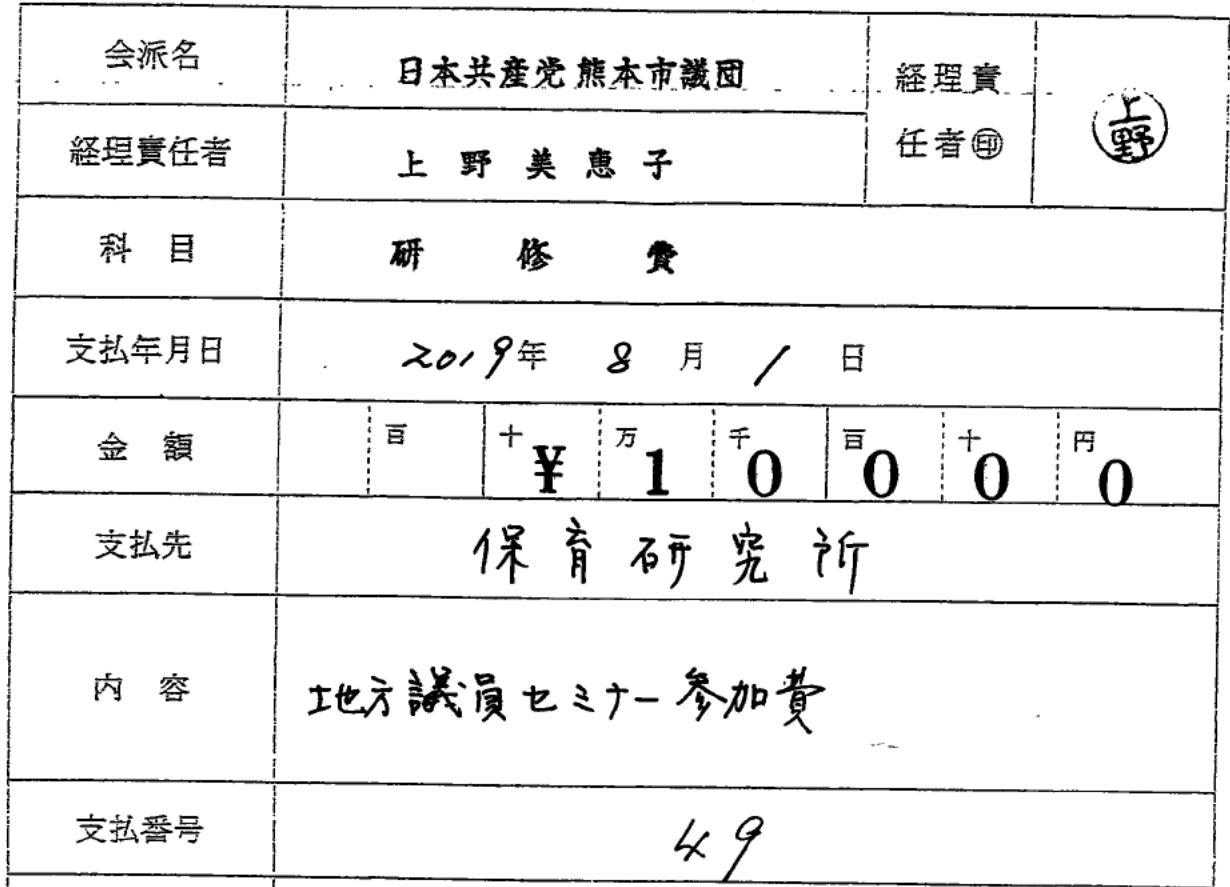 会派名 日本共産党熊本市議団 経理責任者㊞ 上野
経理責任者 上野美恵子
科目 研修費
支払年月日 2019年8月1日
金額 百 十 万 千 百 十 円 ¥100000
支払先 保育研究所
内容 地方議員セミナー参加費
支払番号 49